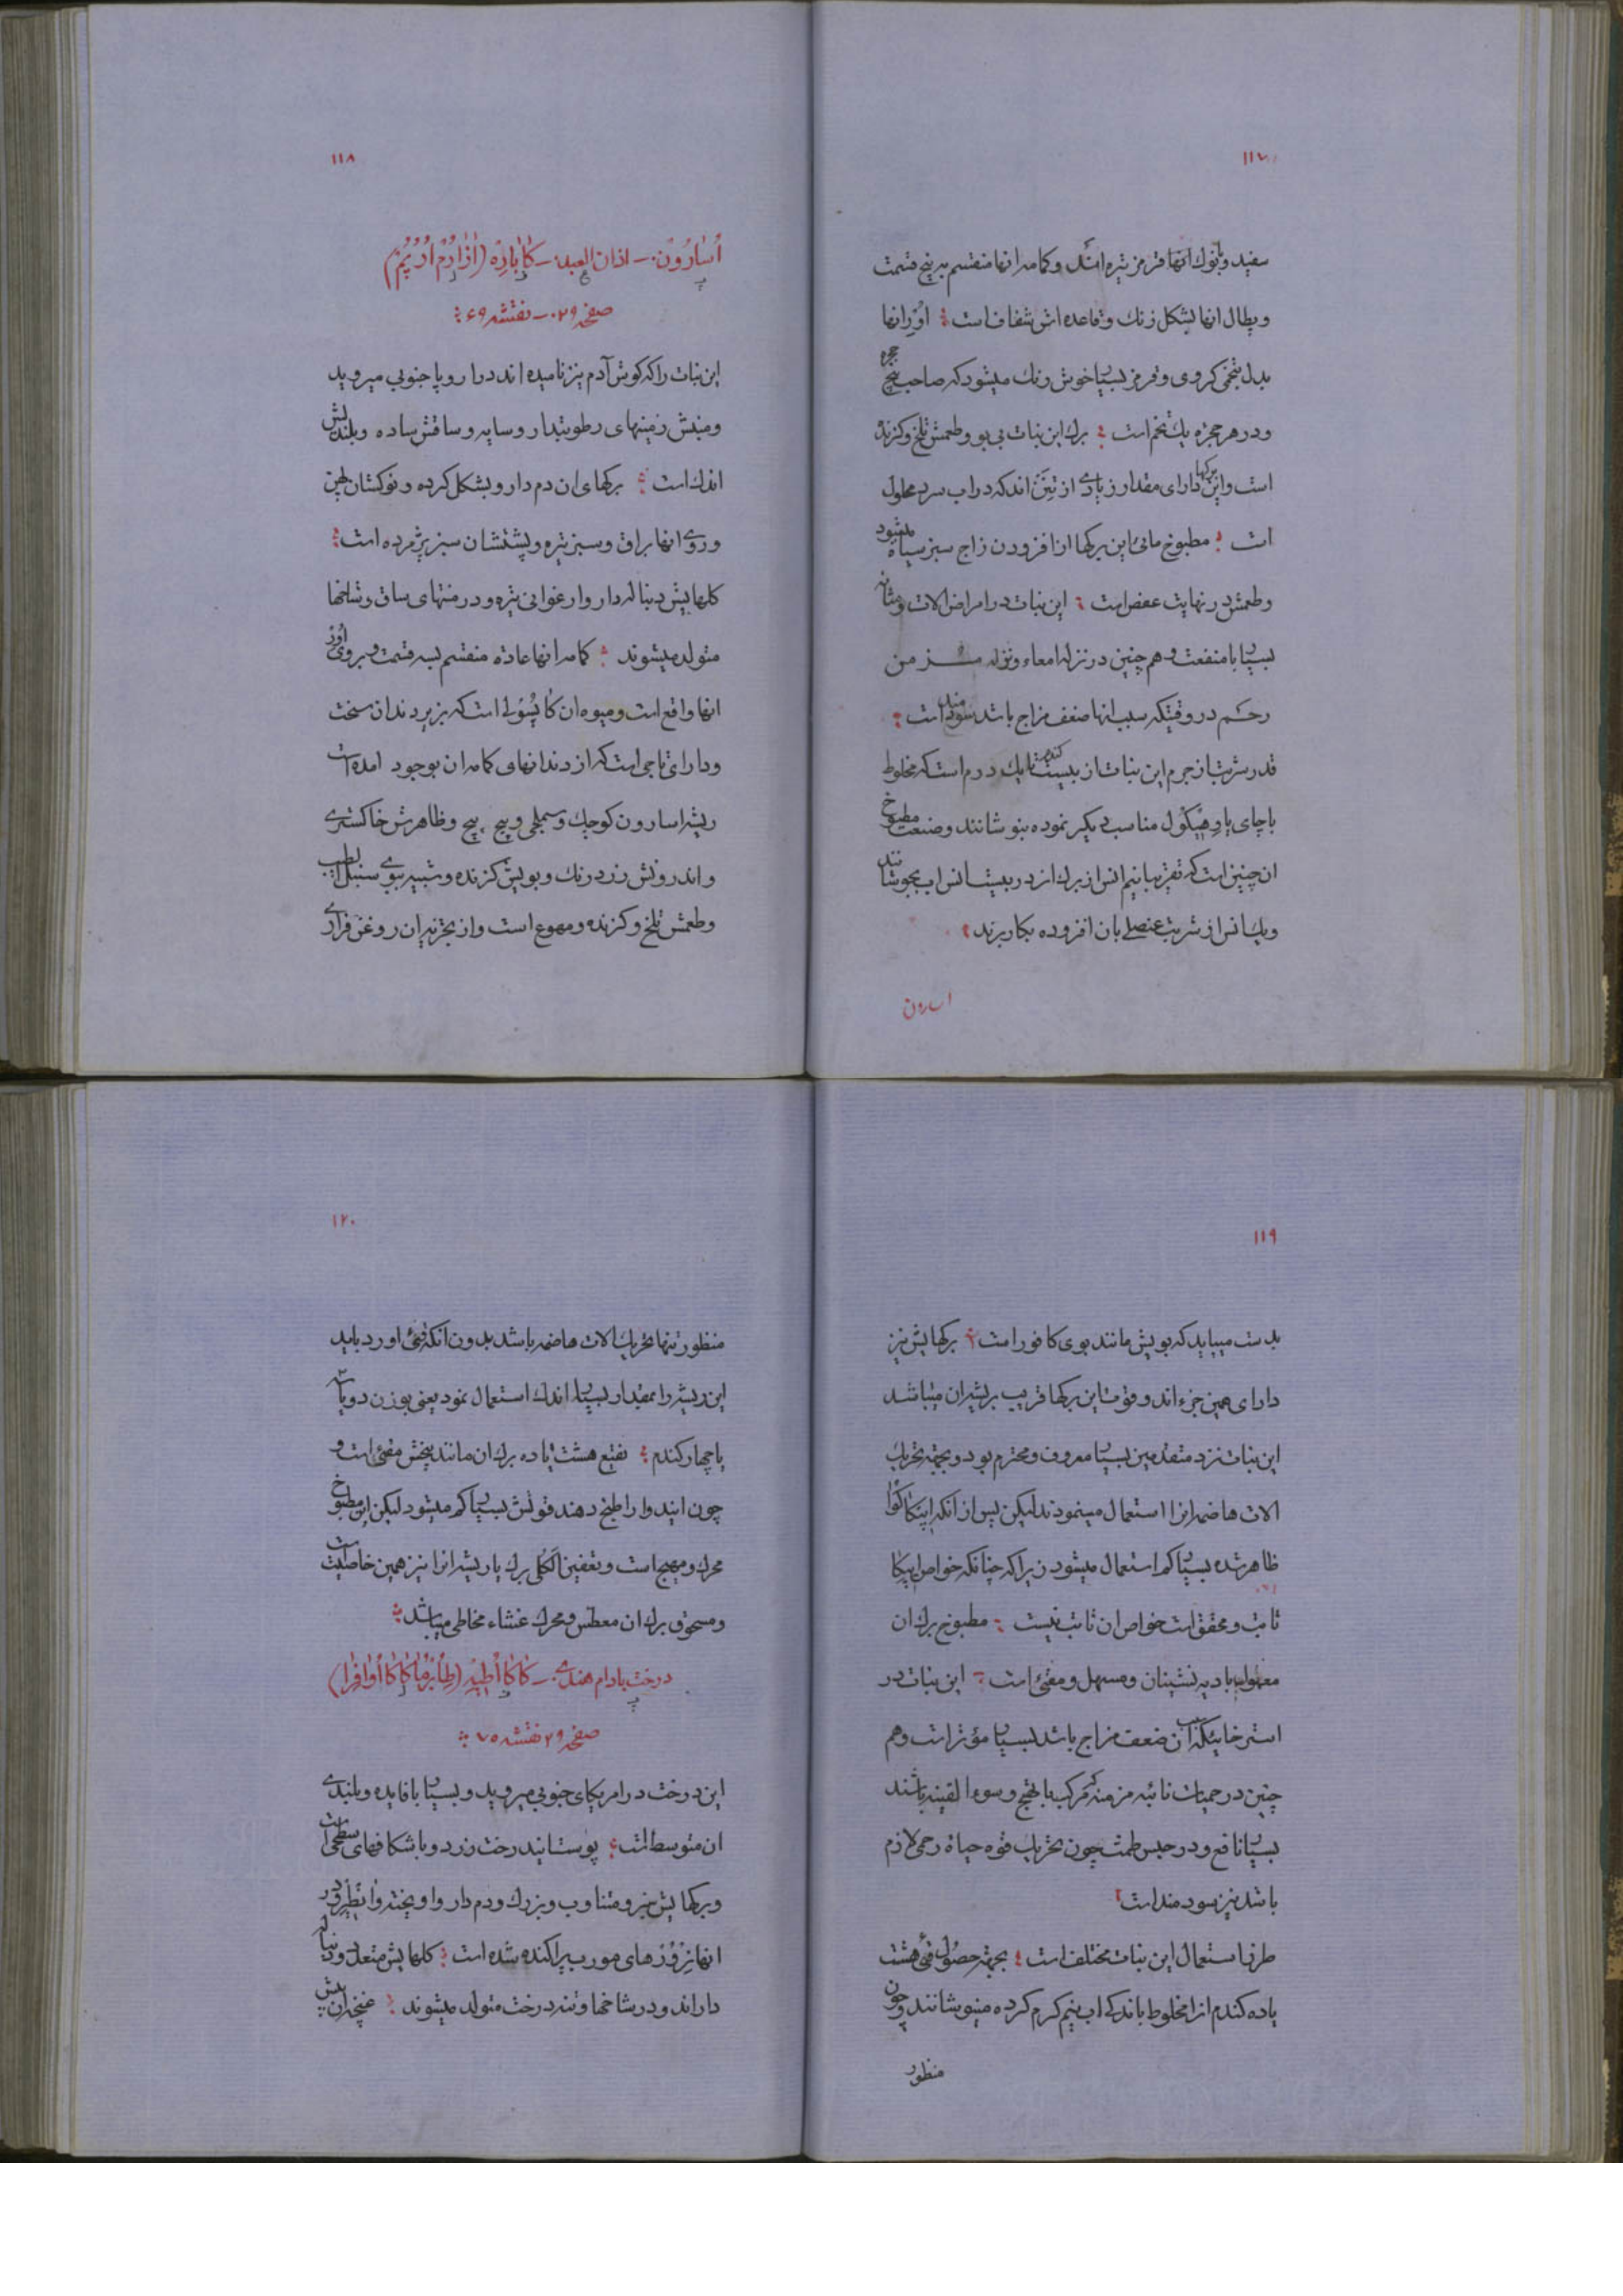 ١١٧
سفید و بنوک انها قرمز تیره اند و کامه انها منقسم به پنج قسمت
و پطال انها بشکل زنک و قاعده اش شفاف است ؛ اوُر انها
بدل بتخمی کروی و قرمز بسیار خوش رنک میشود که صاحب پنج حجره
و در هر حجره یک تخم است ؛ برک این نبات بی بو و طعمش تلخ و کزنده
است و این برکها دارای مقدار زیادی از تنن اند که در اب سرد محلول
است ؛ مطبوخ مائی این برکها از افزودن زاج سبز سیاه میشود
و طعمش در نهایت عفص است ؛ این نبات در امراض الات و مثانه
بسیار با منفعت و هم چنین در نزله امعاء و نزله مزمن
رحم در وقتیکه سبب انها ضعف مزاج باشد سودمند است ؛
قدر شربت از جرم این نبات از بیست کندم تا یک درم است که مخلوط
با چای یا وهیکول مناسب دیکر نموده بنوشانند و صنعت مطبوخ
ان چنین است که تقریبا نیم انس از برک را در بیست انس اب بجوشانند
و یک انس از شربت عنصلی بان افزوده بکار برند ؛
اسارون
١١٨
اَسارُون ـ اذان العبد ـ کاباره (ازارُم اُرُپُم)
صفحه ٢٩ ـ نقشه ۶٩ ؛
این نبات را که کوش آدم نیز نامیده اند در اروپا جنوبی میروید
و منبتش زمینهای رطوبتدار و سایه و ساقش ساده و بلندیش
اندک است ؛ برکهای ان دم دار و بشکل کرده و نوکشان پهن
و روی انها براق و سبز تیره و پشتشان سبز پژمرده است ؛
کلهایش دنباله دار و ارغوانی تیره و در منتهای ساق و شاخها
متولد میشوند ؛ کامه انها عادة منقسم بسه قسمت و بروی اوُر
انها واقع است و میوه ان کاپسُولی است که بزیر دندان سخت
و دارای تاجی است که از دندانهای کامه ان بوجود امده است
ریشه اسارون کوچک و سملجی و پیچ پیچ و ظاهرش خاکستری
و اندرونش زرد رنک و بویش کزنده و شبیه ببوی سنبل الطیب
و طعمش تلخ و کزنده و مهوع است و از تجزیه ان روغن فراری
١١٩
بدست میاید که بویش مانند بوی کافور است ؛ برکهایش نیز
دارای همین جزء اند و قوت این برکها قریب بریشه ان میباشد
این نبات نزد متقدمین بسیار معروف و محترم بود و بجهة تحریک
الات هاضمه انرا استعمال مینمودند لیکن پس از انکه اپیکاکوا
ظاهر شده بسیار کم استعمال میشود زیرا که چنانکه خواص اپیکا
ثابت و محقق است خواص ان ثابت نیست ؛ مطبوخ برک ان
معمول بادیه نشینان و مسهل و مقئی است ؛ این نبات در
استرخائیکه سبب ان ضعف مزاج باشد بسیار مؤثر است و هم
چنین در حمیات نائبه مزمنه که مرکب با تهیج و سوء القنیه باشند
بسیار نافع و در حبس طمث چون تحریک قوه حیاة رحمی لازم
باشد نیز سودمند است ؛
طرز استعمال این نبات مختلف است ؛ بجهة حصول قئ هشت
یا ده کندم انرا مخلوط باندکی اب نیم کرم کرده مینوشانند و چون
منظور
١٢٠
منظور تنها تحریک الات هاضمه باشد بدون انکه قئی اورد باید
این ریشه را بمقدار بسیار اندک استعمال نمود یعنی بوزن دو یا سه
یا چهار کندم ؛ نقیع هشت یا ده برک ان مانند بیخش مقئی است و
چون ایندوا را طبخ دهند قوتش بسیار کم میشود لیکن این مطبوخ
محرک و مهیج است و تعفین الکلی برک یا ریشه انرا نیز همین خاصیت است
و مسحوق برک ان معطس و محرک غشاء مخاطی میباشد ؛
درخت بادام هندی ـ کاکااُطیه (طابرُما کاکااُوافرا)
صفحه ٢٩ نقشه ٧٠ ؛
این درخت در امریکای جنوبی میروید و بسیار با فایده و بلندی
ان متوسط است ؛ پوست ایندرخت زرد و با شکافهای سطحی است
و برکهایش سبز و متناوب و بزرک و دم دار و اویخته و ابطریق در
انها نِرْوُرهای مورب پراکنده شده است ؛ کلهایش متعدد و دنباله
دار اند و در شاخها و تنه درخت متولد میشوند ؛ غنچه ان پیش